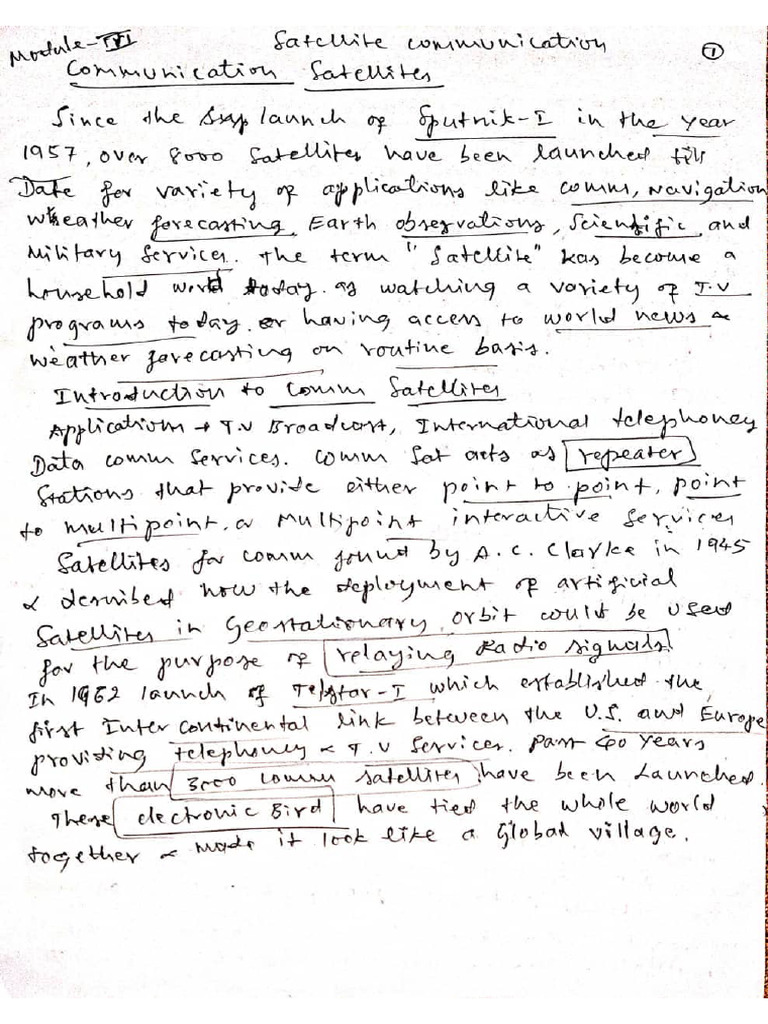 Module-IV Satellite communication 1
Communication Satellites
Since the launch of Sputnik-I in the year
1957, over 8000 Satellites have been launched till
Date for variety of applications like comm, Navigation
weather forecasting, Earth observations, Scientific, and
Military Services. The term "Satellite" has become a
household word today. as watching a variety of T.V
programs today or having access to world news &
weather forecasting on routine basis.
Introduction to Comm Satellites
Applications → T.V Broadcast, International telephoney
Data comm Services. Comm Sat acts as repeater
Stations that provide either point to point, point
to multipoint, or Multipoint interactive Services
Satellites for comm found by A.C. Clarke in 1945
& described how the deployment of artificial
Satellites in Geostationary orbit could be used
for the purpose of relaying Radio signals
In 1962 launch of Telstar-I which established the
first Inter continental link between the U.S. and Europe
providing telephoney & T.V Services. Past 40 years
more than 3000 comm satellites have been Launched
These electronic Bird have tied the whole world
together & made it look like a Global village.